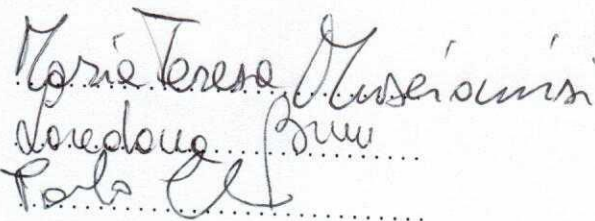 Maria Teresa Muscianisi
Loredana Bruno
Paolo